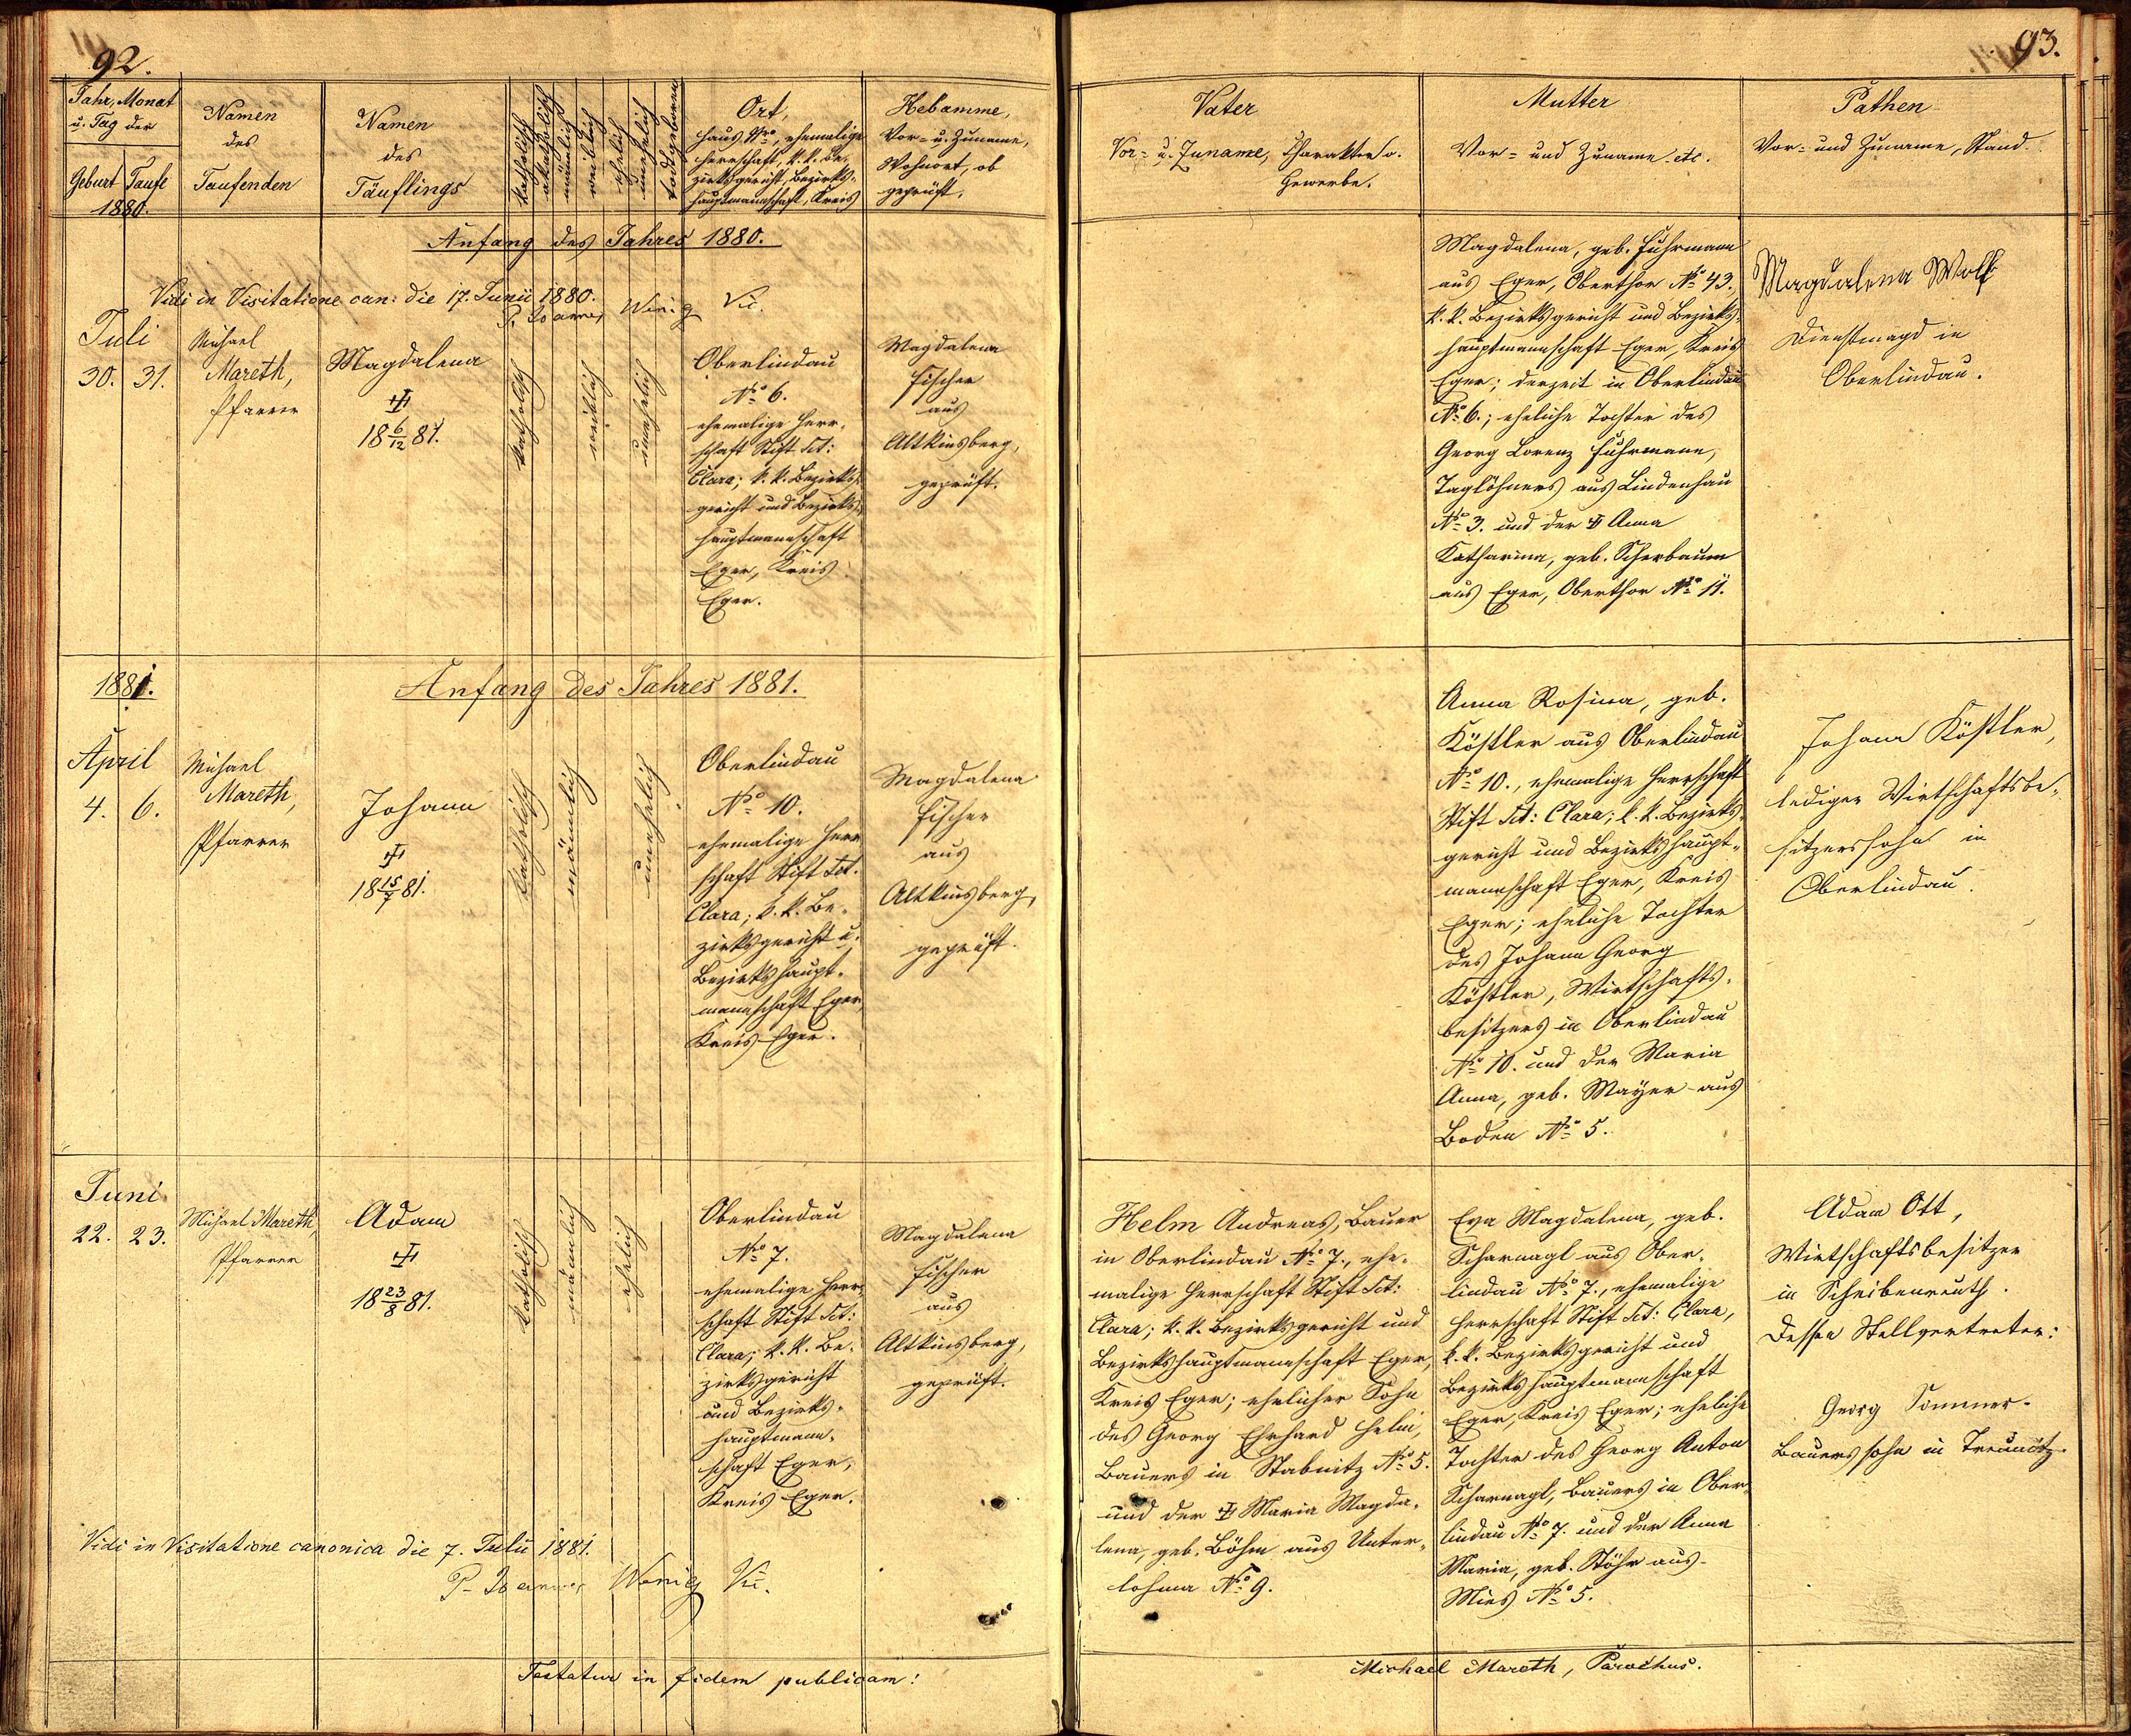 92.
Jahr, Monat
u. Tag der
Geburt Taufe
1880.
Namen
des
Taufenden
Namen
des
Täuflings
katholisch
akatholisch
männlich
weiblich
ehelich
unehelich
todtgeboren
Ort,
Haus Nro, ehemalige
Herrschaft, k. k. Be-
zirksgericht, Bezirks-
hauptmannschaft, Kreis
Hebamme,
Vor- u. Zuname,
Wohnort, ob
geprüft.
Anfang des Jahres 1880.
Vidi in Visitatione can: die 17. Junii 1880.
P. Joannes Wenig Vic.
Juli
30. 31.
Michael
Mareth,
Pfarrer
Magdalena
18 6/12 81.
katholisch
weiblich
unehelich
Oberlindau
No 6.
ehemalige Herr-
schaft Stift Sct:
Clara; k. k. Bezirks-
gericht und Bezirks-
hauptmannschaft
Eger, Kreis
Eger.
Magdalena
Fischer
aus
Altkinsberg,
geprüft.
1881.
Anfang des Jahres 1881.
April
4. 6.
Michael
Mareth,
Pfarrer
Johann
18 15/7 81.
katholisch
männlich
unehelich
Oberlindau
No 10.
ehemalige Herr
schaft Stift Sct.
Clara; k. k. Be-
zirksgericht u.
Bezirkshaupt-
mannschaft Eger,
Kreis Eger.
Magdalena
Fischer
aus
Altkinsberg,
geprüft.
Juni
22. 23.
Michael Mareth,
Pfarrer
Adam
18 23/8 81.
katholisch
männlich
ehelich
Oberlindau
No 7.
ehemalige Herr-
schaft Stift Sct:
Clara; k. k. Be-
zirksgericht
und Bezirks-
hauptmann-
schaft Eger,
Kreis Eger.
Magdalena
Fischer
aus
Altkinsberg,
geprüft.
Vidi in Visitatione canonica die 7. Julii 1881.
P. Joannes Wenig Vic.
Testatur in fidem publicam:
93.
Vater
Vor- u. Zuname, Charakter o.
Gewerbe.
Mutter
Vor- und Zuname etc.
Pathen
Vor- und Zuname, Stand.
Magdalena, geb. Fuhrmann
aus Eger, Oberthor No 43.
k. k. Bezirksgericht und Bezirks-
hauptmannschaft Eger, Kreis
Eger; derzeit in Oberlindau
No 6.; eheliche Tochter des
Georg Lorenz Fuhrmann,
Taglöhners aus Lindenhau
No 3. und der Anna
Katharina, geb. Scherbaum
aus Eger, Oberthor No 11.
Magdalena Wolf
Dienstmagd in
Oberlindau.
Anna Rosina, geb.
Köstler aus Oberlindau
No 10., ehemalige Herrschaft
Stift Sct: Clara; k. k. Bezirks-
gericht und Bezirkshaupt-
mannschaft Eger, Kreis
Eger; eheliche Tochter
des Johann Georg
Köstler, Wirtschafts-
besitzers in Oberlindau
No 10. und der Maria
Anna, geb. Mayer aus
Boden No 5.
Johann Köstler,
lediger Wirthschaftsbe-
sitzerssohn in
Oberlindau.
Helm Andreas, Bauer
in Oberlindau No 7., ehe-
malige Herrschaft Stift Sct:
Clara; k. k. Bezirksgericht und
Bezirkshauptmannschaft Eger,
Kreis Eger; ehelicher Sohn
des Georg Erhard Helm,
Bauers in Stabnitz No 5.
und der Maria Magda-
lena, geb. Böhm aus Unter-
lohma No 9.
Eva Magdalena, geb.
Scharnagl aus Ober-
lindau No 7., ehemalige
Herrschaft Stift Sct: Clara,
k. k. Bezirksgericht und
Bezirkshauptmannschaft
Eger, Kreis Eger; eheliche
Tochter des Georg Anton
Scharnagl, Bauers in Ober-
lindau No 7. und der Anna
Maria, geb. Stöhr aus
Mies No 5.
Adam Ott,
Wirtschaftsbesitzer
in Scheibenreuth.
Dessen Stellvertreter:
Georg Sommer
Bauerssohn in Treunitz.
Michael Mareth, Parochus.